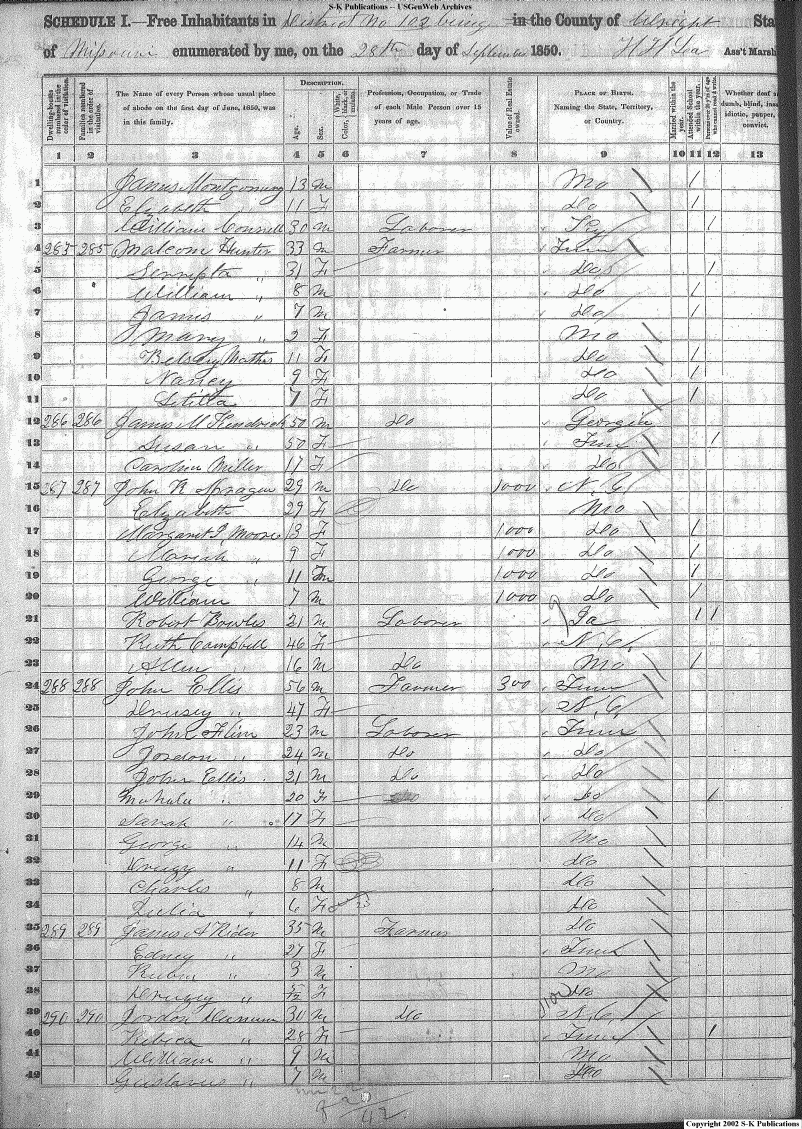 S-K Publications -- USGenWeb Archives
SCHEDULE I.—Free Inhabitants in District No 102 being in the County of Wright Sta
of Missouri enumerated by me, on the 28th day of September 1850. H H Lea Ass't Marsh
DESCRIPTION.
Dwelling-houses numbered in the order of visitation.
Families numbered in the order of visitation.
The Name of every Person whose usual place of abode on the first day of June, 1850, was in this family.
Age.
Sex.
Color, White, black, or mulatto.
Profession, Occupation, or Trade of each Male Person over 15 years of age.
Value of Real Estate owned.
PLACE OF BIRTH. Naming the State, Territory, or Country.
Married within the year.
Attended School within the year.
Persons over 20 y'rs of age who cannot read & write.
Whether deaf a dumb, blind, insa idiotic, pauper, convict.
1 2 3 4 5 6 7 8 9 10 11 12 13
1 James Montgomery 13 M Mo 1
2 Elizabeth 11 F Do 1
3 William Connell 30 M Laborer Ky 1
4 285 285 Malcom Hunter 33 M Farmer Tenn
5 " 31 F Do 1
6 William " 8 M Do 1
7 James " 7 M Do 1
8 Mary " 2 F Mo
9 Betsey Mathis 11 F Do 1
10 Nancy 9 F Do 1
11 7 F Do 1
12 286 286 James M Kendrick 50 M Do Georgia
13 Susan " 50 F Tenn 1
14 Caroline Miller 17 F Do
15 287 287 John R Sprague 29 M Do 1000 N.C.
16 Elizabeth 29 F Mo
17 Margaret J Moore 13 F 1000 Do 1
18 Mariah " 9 F 1000 Do 1
19 George " 11 M 1000 Do 1
20 William 7 M 1000 Do 1
21 Robert Bowles 21 M Laborer 1 1
22 Ruth Campbell 46 F N.C.
23 Allen " 16 M Do Mo 1
24 288 288 John Ellis 56 M Farmer 300 Tenn
25 Drusey " 47 F N.C.
26 John Flim 23 M Laborer Tenn
27 Jordon " 24 M Do Do
28 John Ellis 21 M Do Do
29 Mahala " 20 F Do 1
30 Sarah " 17 F Do
31 George " 14 M Mo
32 " 11 F Do
33 Charles " 8 M Do
34 Julia " 6 F Do
35 289 289 James A Rider 35 M Farmer Do
36 Edney " 27 F Tenn
37 Rubin " 3 M Mo
38 " F Do
39 290 290 Jordon 30 M Do N.C.
40 Rebica " 28 F Tenn 1
41 William " 9 M Mo
42 Gustavus " 7 M Do
42
Copyright 2002 S-K Publications